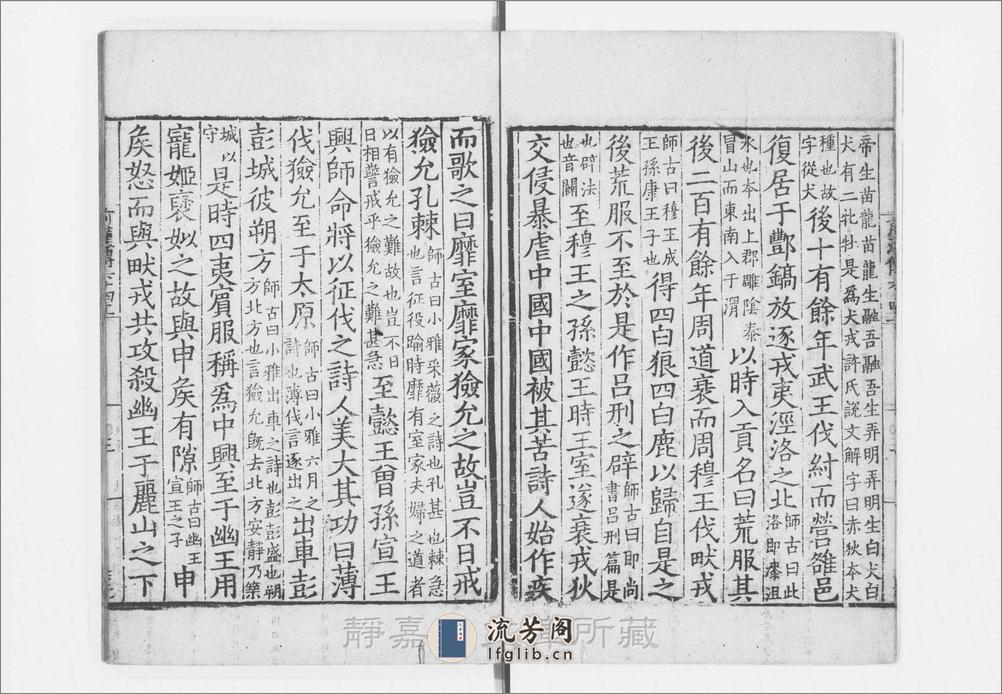 帝生苗龍苗龍生融吾融吾生弄明弄明生白犬白
犬有二牝牡是爲犬戎許氏説文解字曰赤狄本犬
種也故字從犬後十有餘年武王伐紂而營雒邑
復居于酆鎬放逐戎夷涇洛之北師古曰此洛即漆沮
水也本出上郡雕陰泰冒山而東南入于渭以時入貢名曰荒服其
後二百有餘年周道衰而周穆王伐畎戎
師古曰穆王成王孫康王子也得四白狼四白鹿以歸自是之
後荒服不至於是作吕刑之辟師古曰即尚書吕刑篇是
也辟法也音闢至穆王之孫懿王時王室遂衰戎狄
交侵暴虐中國中國被其苦詩人始作疾
而歌之曰靡室靡家獫允之故豈不日戒
獫允孔棘師古曰小雅采薇之詩也孔甚也棘急也言征役踰時靡有室家夫婦之道者
以有獫允之難故也豈不日日相警戒乎獫允之難甚急至懿王曾孫宣王
興師命將以征伐之詩人美大其功曰薄
伐獫允至于太原師古曰小雅六月之詩也薄伐言逐出之出車彭
彭城彼朔方師古曰小雅出車之詩也彭彭盛也朔方北方也言獫允既去北方安靜乃築
城以守是時四夷賓服稱爲中興至于幽王用
寵姬襃姒之故與申矦有隙師古曰幽王宣王之子申
矦怒而與畎戎共攻殺幽王于麗山之下
靜嘉 所藏
流芳阁
lfglib.cn